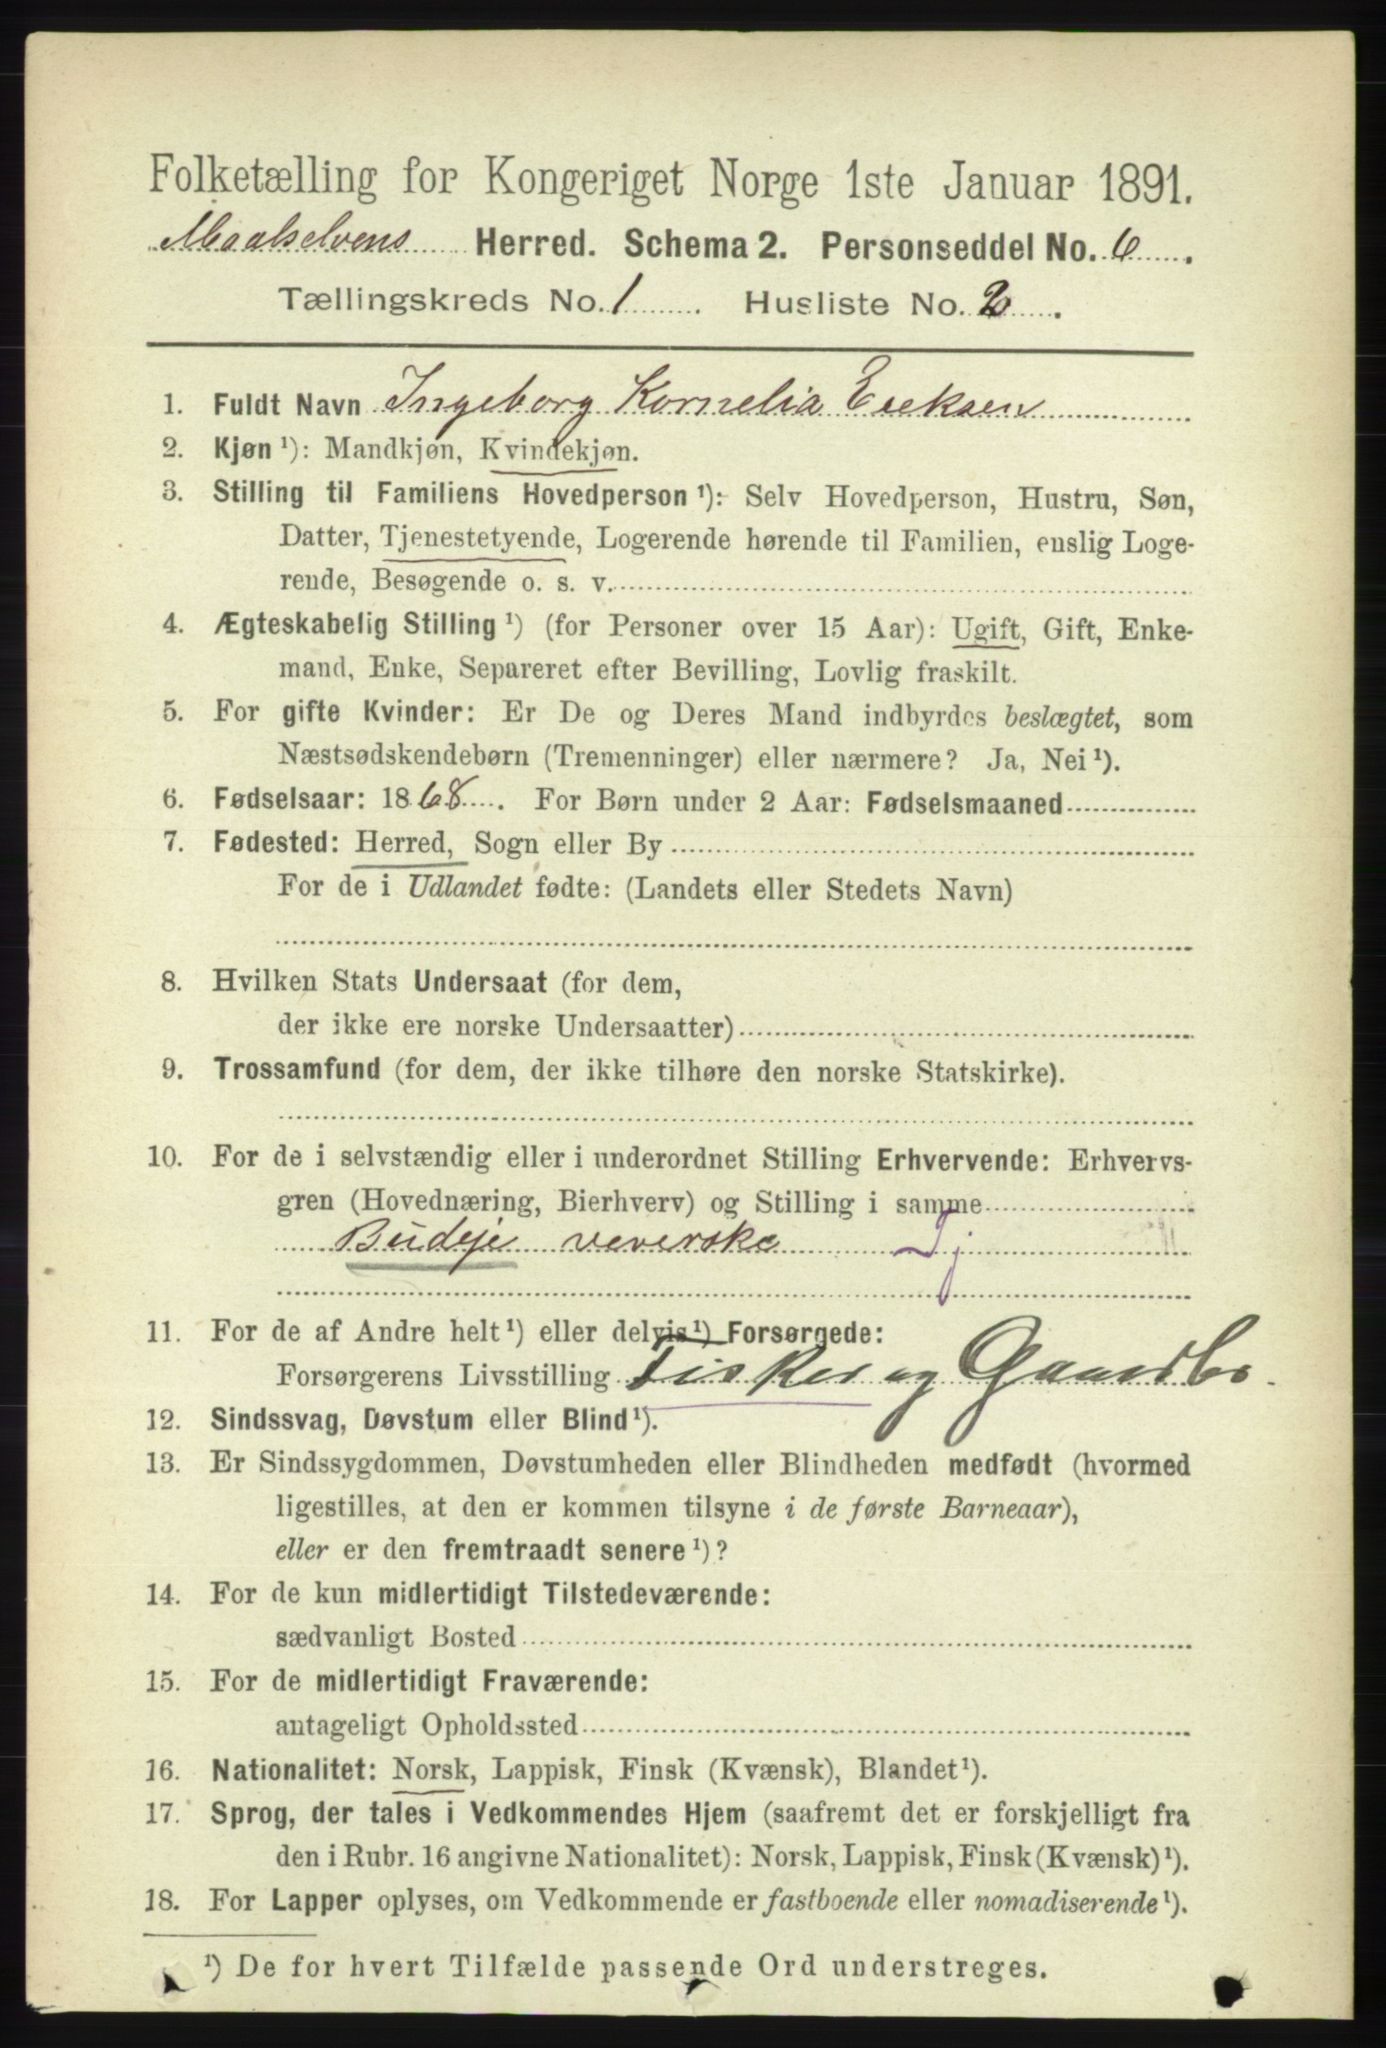 Folketælling for Kongeriget Norge 1ste Januar 1891.
Maalselvens Herred. Schema 2. Personseddel No. 6.
Tællingskreds No. 1. Husliste No. 2.
1. Fuldt Navn Ingeborg Kornelia Ereksen
2. Kjøn ¹): Mandkjøn, Kvindekjøn.
3. Stilling til Familiens Hovedperson ¹): Selv Hovedperson, Hustru, Søn,
Datter, Tjenestetyende, Logerende hørende til Familien, enslig Loge-
rende, Besøgende o. s. v.
4. Ægteskabelig Stilling ¹) (for Personer over 15 Aar): Ugift, Gift, Enke-
mand, Enke, Separeret efter Bevilling, Lovlig fraskilt.
5. For gifte Kvinder: Er De og Deres Mand indbyrdes beslægtet, som
Næstsødskendebørn (Tremenninger) eller nærmere? Ja, Nei ¹).
6. Fødselsaar: 1868. For Børn under 2 Aar: Fødselsmaaned
7. Fødested: Herred, Sogn eller By
For de i Udlandet fødte: (Landets eller Stedets Navn)
8. Hvilken Stats Undersaat (for dem,
der ikke ere norske Undersaatter)
9. Trossamfund (for dem, der ikke tilhøre den norske Statskirke).
10. For de i selvstændig eller i underordnet Stilling Erhvervende: Erhvervs-
gren (Hovednæring, Bierhverv) og Stilling i samme
Budeje veverske Tj
11. For de af Andre helt ¹) eller delvis ¹) Forsørgede:
Forsørgerens Livsstilling Fisker og Gaardbr.
12. Sindssvag, Døvstum eller Blind ¹).
13. Er Sindssygdommen, Døvstumheden eller Blindheden medfødt (hvormed
ligestilles, at den er kommen tilsyne i de første Barneaar),
eller er den fremtraadt senere ¹)?
14. For de kun midlertidigt Tilstedeværende:
sædvanligt Bosted
15. For de midlertidigt Fraværende:
antageligt Opholdssted
16. Nationalitet: Norsk, Lappisk, Finsk (Kvænsk), Blandet ¹).
17. Sprog, der tales i Vedkommendes Hjem (saafremt det er forskjelligt fra
den i Rubr. 16 angivne Nationalitet): Norsk, Lappisk, Finsk (Kvænsk) ¹).
18. For Lapper oplyses, om Vedkommende er fastboende eller nomadiserende ¹).
¹) De for hvert Tilfælde passende Ord understreges.